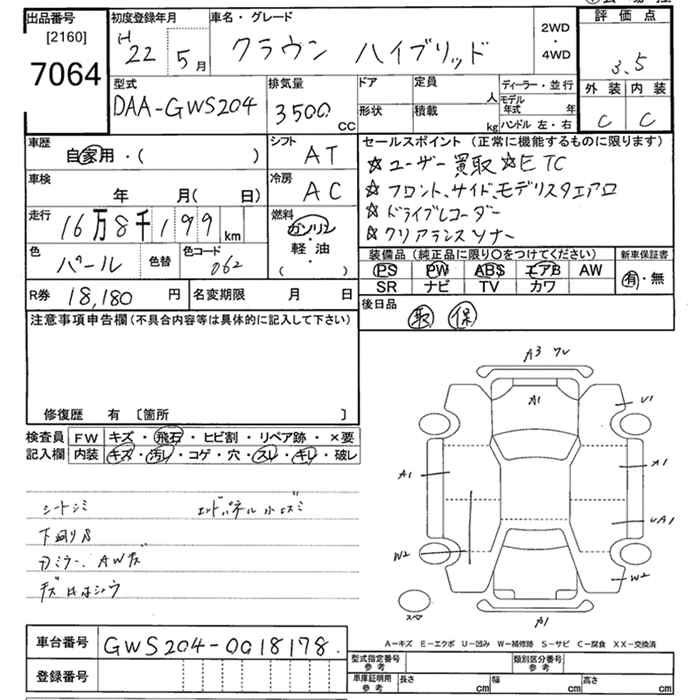 出品番号
[2160]
7064
初度登録年月
H 22 5月
車名・グレード
クラウン ハイブリッド
2WD
・
4WD
評価点
3.5
外装 内装
C C
型式
DAA-GWS204
排気量
3500 CC
ドア
定員
人
形状
積載
kg
ディーラー・並行
モデル年式 年
ハンドル 左・右
車歴
自家用・( )
シフト
AT
車検
年 月( 日)
冷房
AC
走行
16万8千199 km
燃料
ガソリン
軽・油
( )
色
パール
色替
色コード
062
R券 18,180 円
名変期限 月 日
セールスポイント(正常に機能するものに限ります)
☆ユーザー買取 ☆ETC
☆フロント、サイド、モデリスタエアロ
☆ドライブレコーダー
☆クリアランスソナー
装備品(純正品に限り○をつけてください)
PS PW ABS エアB AW
SR ナビ TV カワ
新車保証書
有・無
後日品
取 保
注意事項申告欄(不具合内容等は具体的に記入して下さい)
修復歴 有 [箇所 ]
検査員記入欄
FW キズ・飛石・ヒビ割・リペア跡・×要
内装 キズ・汚レ・コゲ・穴・スレ・キレ・破レ
シートシミ
エンドパネル小ユガミ
下廻りS
Dミラー、AWキズ
A3 ワレ
A1
U1
A1
A1
UA1
W2
W2
スペア
A1
A-キズ E-エクボ U-凹み W-補修跡 S-サビ C-腐食 XX-交換済
車台番号
GWS204-0018178
登録番号
型式指定番号参考
類別区分番号参考
車庫証明用参考
長さ cm
幅 cm
高さ cm